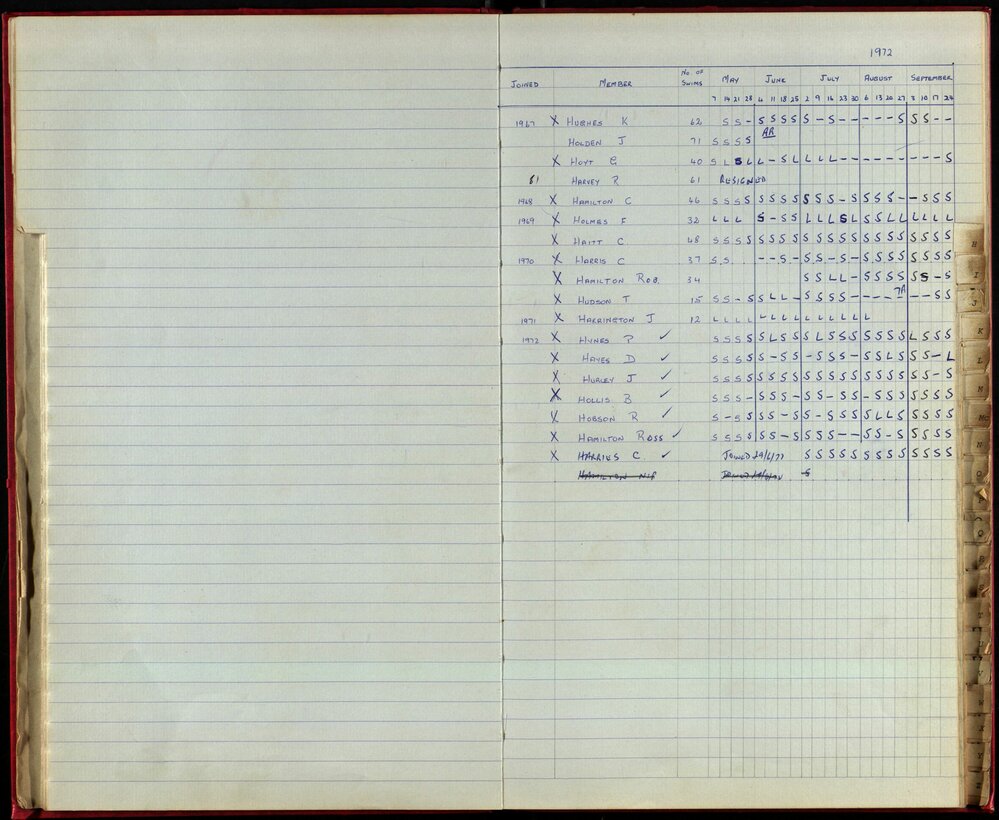 1972
JOINED MEMBER No OF SWIMS MAY JUNE JULY AUGUST SEPTEMBER
7 14 21 28 4 11 18 25 2 9 16 23 30 6 13 20 27 3 10 17 24
1967 X HUGHES K 62 S S - S S S S S - S - - - - S S S - -
AR
HOLDEN J 71 S S S S
X HOYT G 40 S L S L L - S L L L L - - - - - - - - - S
HARVEY R 61 RESIGNED
1968 X HAMILTON C 46 S S S S S S S S S S S - S S S S - - S S S
1969 X HOLMES F 32 L L L S - S S L L L S L S S L L L L L L
X HAITT C. 48 S S S S S S S S S S S S S S S S S S S S S
1970 X HARRIS C 37 S S - - S - S S - S - S S S S S S S S
X HAMILTON ROB. 34 S S L L - S S S S S S - S
X HUDSON T 15 S S - S S L L - S S S S - - - - - - S S
1971 X HARRINGTON J 12 L L L L - L L L L L L L L L
1972 X HYNES P ✓ S S S S S L S S S L S S S S S S S L S S S
X HAYES D ✓ S S S S S - S S - S S S - S S L S S S - L
X HURLEY J ✓ S S S S S S S S S S S S S S S S S S S - S
X HOLLIS B ✓ S S S - S S S - S S - S S - S S S S S S S
X HOBSON R ✓ S - S S S S - S S - S S S S L L S S S S S
X HAMILTON ROSS ✓ S S S S S S - S S S S - - S S - S S S S S
X HARRIUS C. ✓ JOINED S S S S S S S S S S S S S
HAMILTON S
H
I
J
K
L
M
N
O